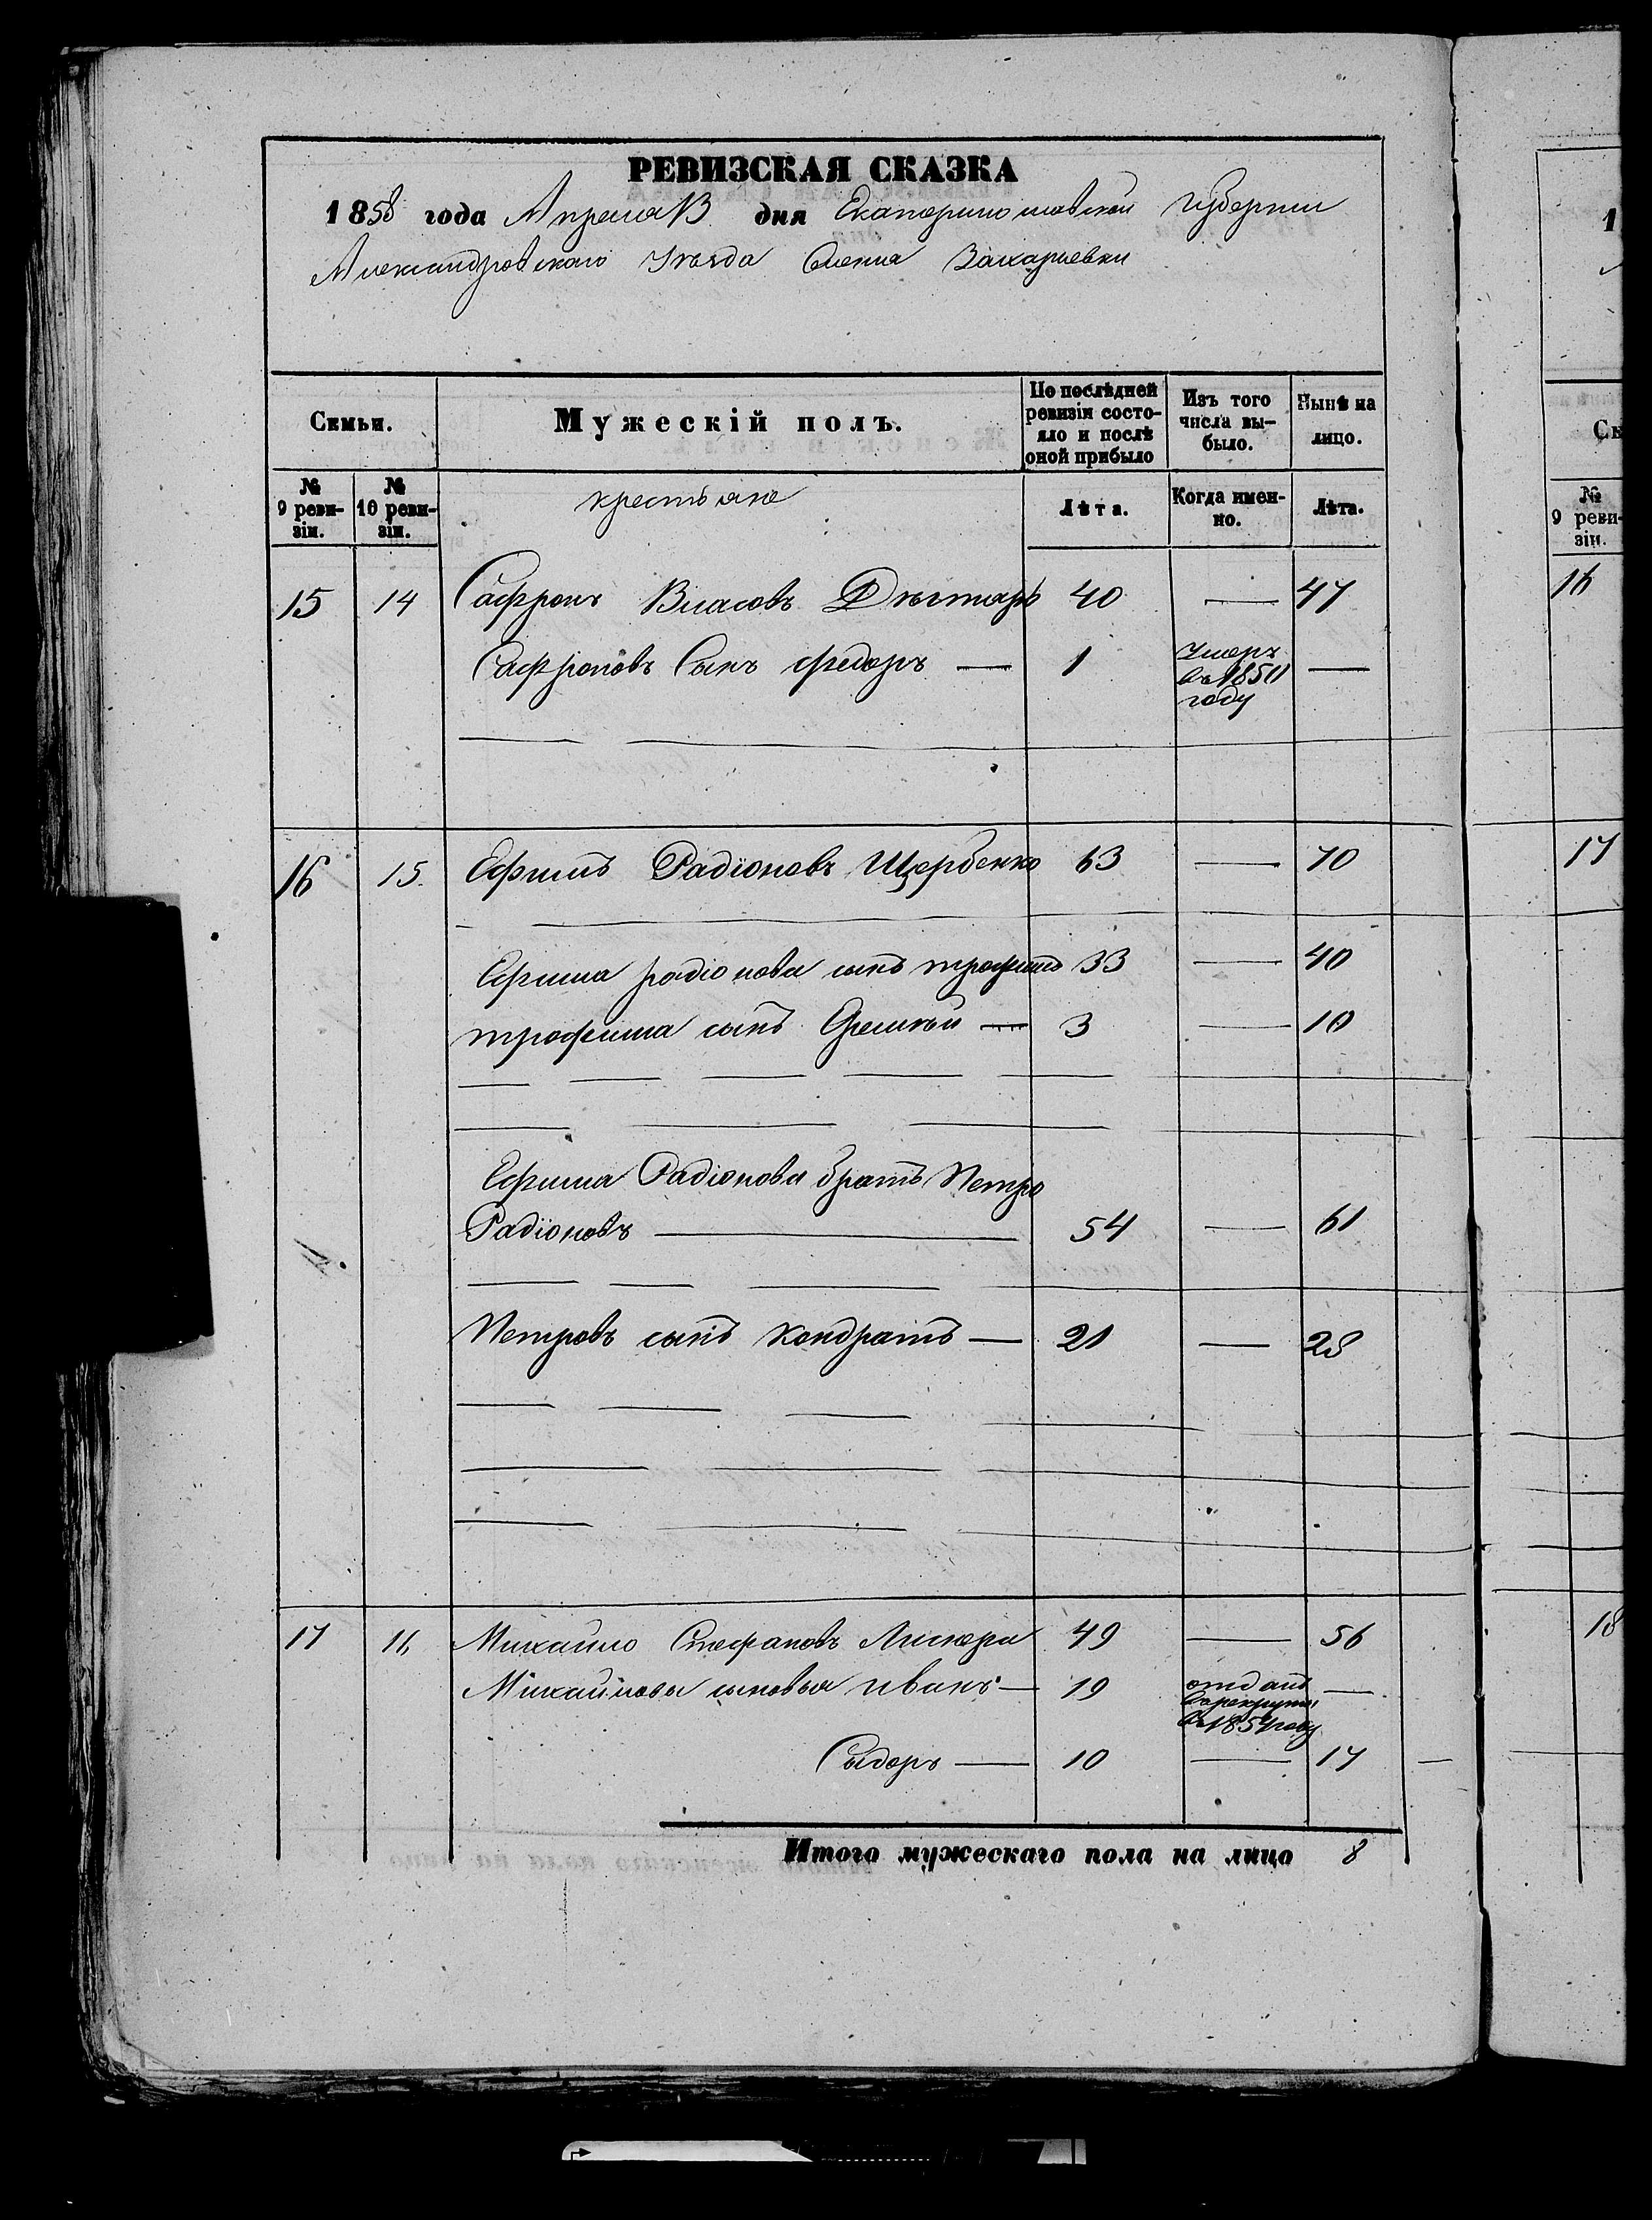 РЕВИЗСКАЯ СКАЗКА
1858 года Апреля 13 дня Екатеринославской Губернии
Александровскаго Уѣзда Селения Захарьевки
Семьи. Мужескій полъ. По послѣдней ревизіи состояло и послѣ оной прибыло Изъ того числа выбыло. Нынѣ на лицо.
№ 9 ревизіи. № 10 ревизіи. крестьяне Лѣта. Когда именно. Лѣта.
15 14 Сафронъ Власовъ 40 — 47
Сафроновъ Сынъ Федоръ — 1 умеръ въ 1850 году —
16 15. Ефимъ Радіоновъ Щербенко 63 — 70
Ефима радіонова сынъ трофимъ 33 — 40
трофима сынъ — 3 — 10
Ефима Радіонова братъ Петро
Радіоновъ — 54 — 61
Петровъ сынъ Кондратъ — 21 — 28
17 16 Михайло Стефановъ 49 — 56
Михайловы сыновья иванъ — 19 отданъ в рекруты въ 1854 году —
Сыдоръ — 10 — 17
Итого мужескаго пола на лицо 8
1
Се
№ 9 ревизіи.
16
17
18